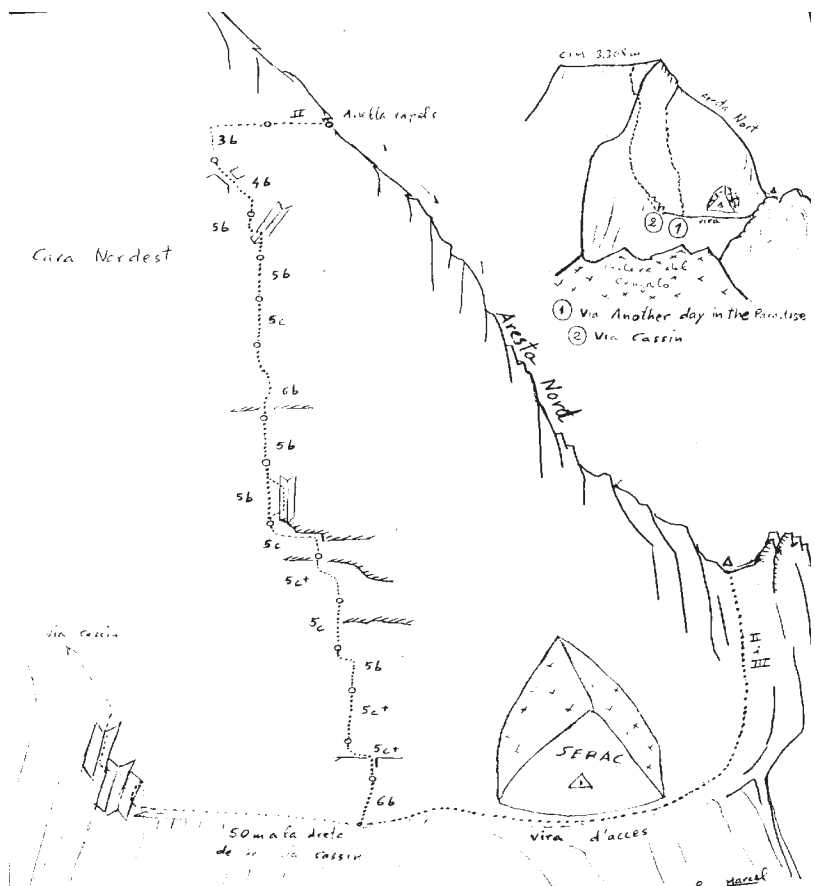 CIM 3.308m
Aresta Nort
vira
2
1
del
1 Via Another day in the Paradise
2 Via Cassin
II
Anella rapels
3b
4b
5b
Cara Nordest
5b
5c
6b
5b
5b
5c
5c+
5c
5b
5c+
5c+
6b
Aresta Nord
II
III
via Cassin
SERAC
50 m a la dreta
de la via Cassin
vira d'acces
Marcel